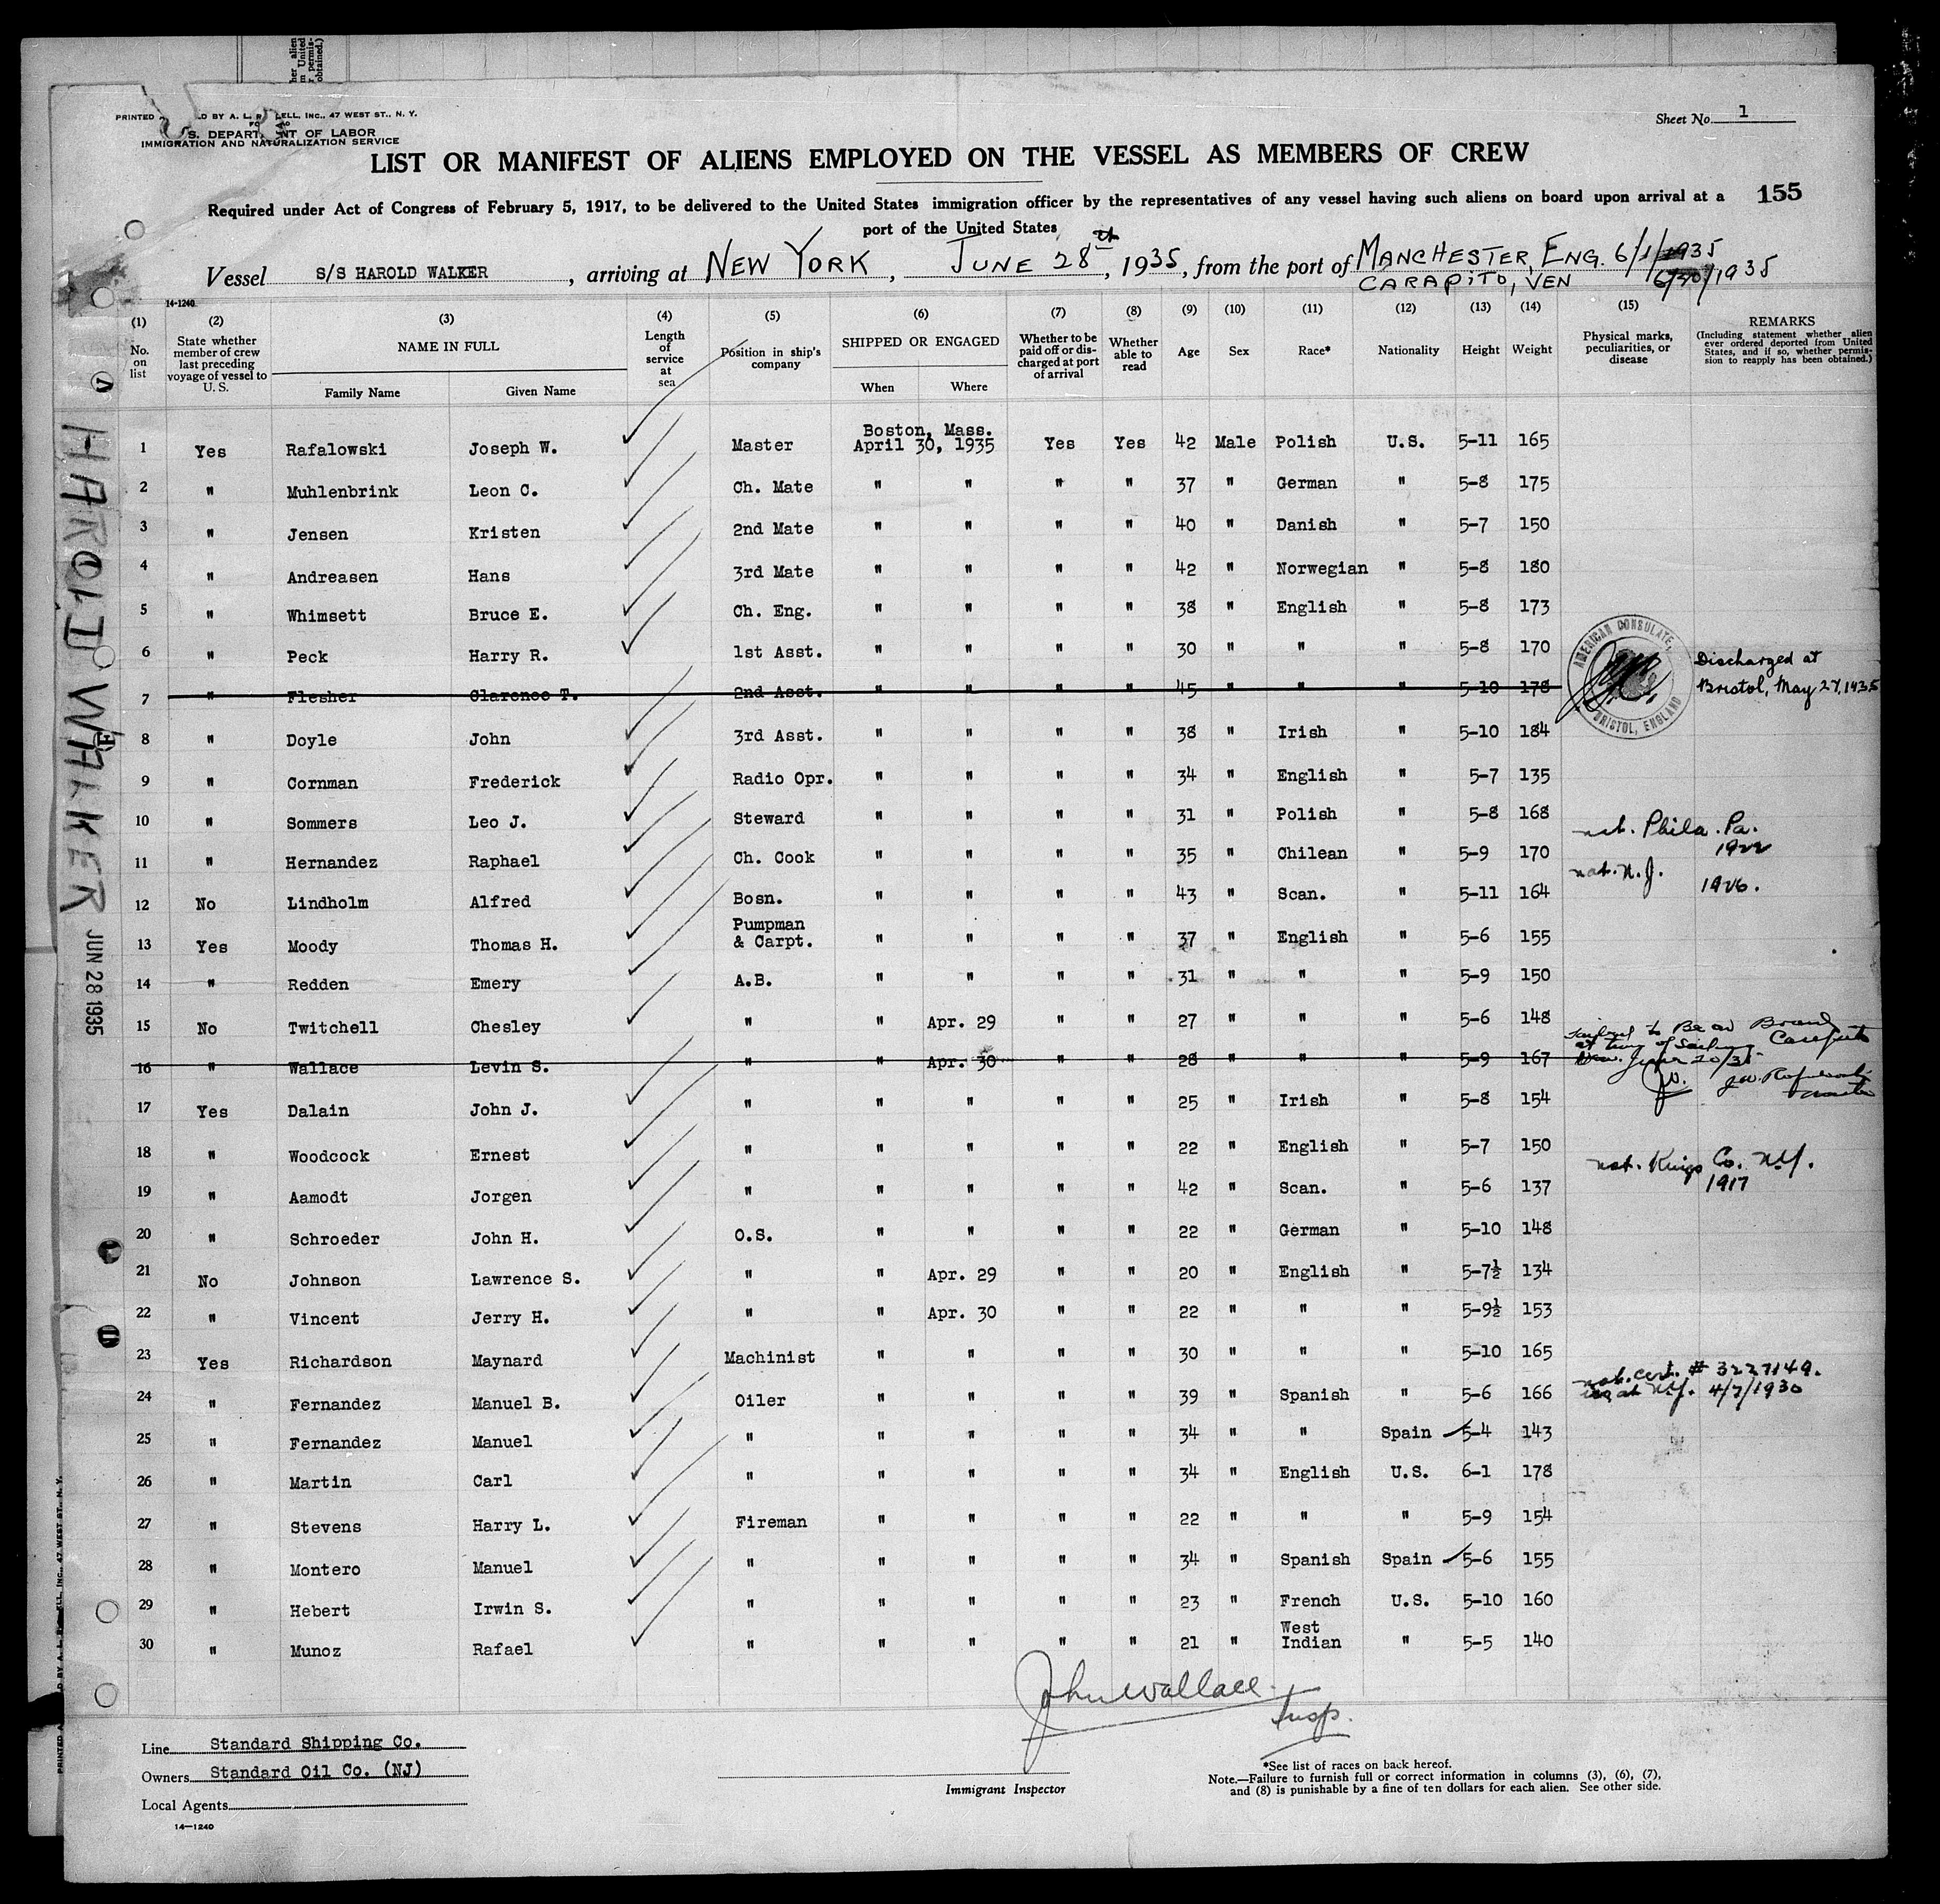 her alien
m United
r permis-
obtained.)
PRINTED D BY A. L. R ELL, INC., 47 WEST ST., N. Y.
S. DEPART NT OF LABOR
IMMIGRATION AND NATURALIZATION SERVICE
Sheet No. 1
LIST OR MANIFEST OF ALIENS EMPLOYED ON THE VESSEL AS MEMBERS OF CREW
Required under Act of Congress of February 5, 1917, to be delivered to the United States immigration officer by the representatives of any vessel having such aliens on board upon arrival at a 155
port of the United States
Vessel S/S HAROLD WALKER, arriving at NEW YORK, JUNE 28th, 1935, from the port of MANCHESTER, ENG. 6/1/1935
CARAPITO, VEN 6/20/1935
14-1240
(1) No. on list
(2) State whether member of crew last preceding voyage of vessel to U. S.
(3) NAME IN FULL
Family Name Given Name
(4) Length of service at sea
(5) Position in ship's company
(6) SHIPPED OR ENGAGED
When Where
(7) Whether to be paid off or discharged at port of arrival
(8) Whether able to read
(9) Age
(10) Sex
(11) Race*
(12) Nationality
(13) Height
(14) Weight
(15) Physical marks, peculiarities, or disease
REMARKS
(Including statement whether alien ever ordered deported from United States, and if so, whether permission to reapply has been obtained.)
Boston, Mass.
1 Yes Rafalowski Joseph W. Master April 30, 1935 Yes Yes 42 Male Polish U.S. 5-11 165
2 " Muhlenbrink Leon C. Ch. Mate " " " " 37 " German " 5-8 175
3 " Jensen Kristen 2nd Mate " " " " 40 " Danish " 5-7 150
4 " Andreasen Hans 3rd Mate " " " " 42 " Norwegian " 5-8 180
5 " Whimsett Bruce E. Ch. Eng. " " " " 38 " English " 5-8 173
6 " Peck Harry R. 1st Asst. " " " " 30 " " " 5-8 170
7 " Flesher Clarence T. 2nd Asst. " " " " 45 " " " 5-10 178
AMERICAN CONSULATE, BRISTOL, ENGLAND
Discharged at
Bristol, May 27, 1935
8 " Doyle John 3rd Asst. " " " " 38 " Irish " 5-10 184
9 " Cornman Frederick Radio Opr. " " " " 34 " English " 5-7 135
10 " Sommers Leo J. Steward " " " " 31 " Polish " 5-8 168
nat. Phila. Pa.
1922
11 " Hernandez Raphael Ch. Cook " " " " 35 " Chilean " 5-9 170
nat. N.J.
1926.
12 No Lindholm Alfred Bosn. " " " " 43 " Scan. " 5-11 164
13 Yes Moody Thomas H. Pumpman & Carpt. " " " " 37 " English " 5-6 155
14 " Redden Emery A.B. " " " " 31 " " " 5-9 150
15 No Twitchell Chesley " " Apr. 29 " " 27 " " " 5-6 148
16 " Wallace Levin S. " " Apr. 30 " " 28 " " " 5-9 167
Failed to Be on Board
at time of Sailing Caripito
Ven. June 20/35
J.W. Rafalowski
Master
17 Yes Dalain John J. " " " " " 25 " Irish " 5-8 154
18 " Woodcock Ernest " " " " " 22 " English " 5-7 150
nat. Kings Co. N.Y.
1917
19 " Aamodt Jorgen " " " " " 42 " Scan. " 5-6 137
20 " Schroeder John H. O.S. " " " " 22 " German " 5-10 148
21 No Johnson Lawrence S. " " Apr. 29 " " 20 " English " 5-7½ 134
22 " Vincent Jerry H. " " Apr. 30 " " 22 " " " 5-9½ 153
23 Yes Richardson Maynard Machinist " " " " 30 " " " 5-10 165
nat. cert. # 3227149.
iss. at N.Y. 4/7/1930
24 " Fernandez Manuel B. Oiler " " " " 39 " Spanish " 5-6 166
25 " Fernandez Manuel " " " " " 34 " " Spain 5-4 143
26 " Martin Carl " " " " " 34 " English U.S. 6-1 178
27 " Stevens Harry L. Fireman " " " " 22 " " " 5-9 154
28 " Montero Manuel " " " " " 34 " Spanish Spain 5-6 155
29 " Hebert Irwin S. " " " " " 23 " French U.S. 5-10 160
30 " Munoz Rafael " " " " " 21 " West Indian " 5-5 140
John Wallace
Insp.
Line Standard Shipping Co.
Owners Standard Oil Co. (NJ)
Local Agents
14—1240
Immigrant Inspector
*See list of races on back hereof.
Note.—Failure to furnish full or correct information in columns (3), (6), (7),
and (8) is punishable by a fine of ten dollars for each alien. See other side.
HAROLD WALKER
JUN 28 1935